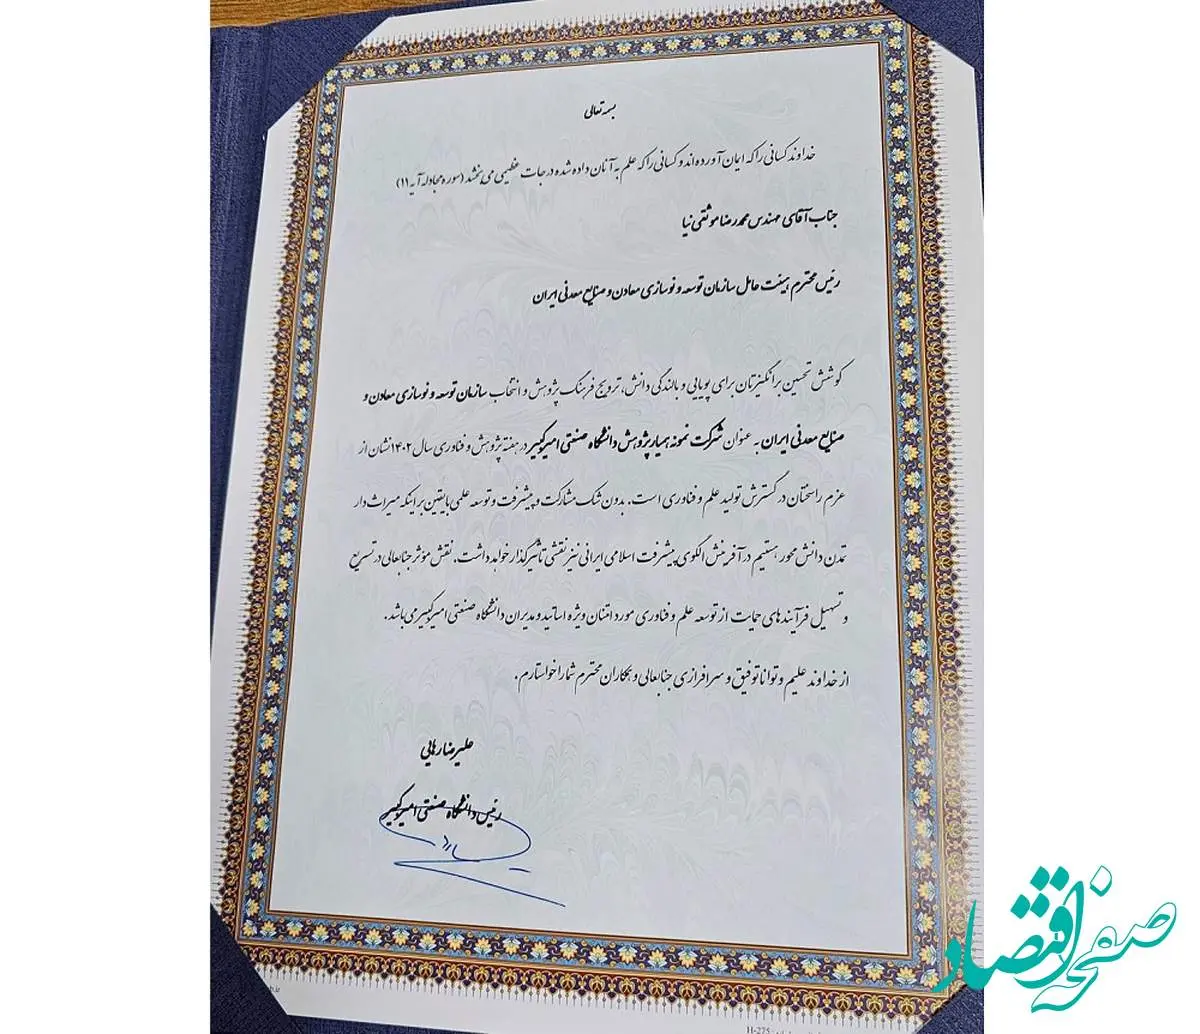 بسمه تعالی
خداوند کسانی را که ایمان آورده اند و کسانی را که علم به آنان داده شده درجات عظیمی می بخشد (سوره مجادله آیه ۱۱)
جناب آقای مهندس محمدرضا موثقی نیا
رئیس محترم هیئت عامل سازمان توسعه و نوسازی معادن و صنایع معدنی ایران
کوشش تحسین برانگیزتان برای پویایی و بالندگی دانش، ترویج فرهنگ پژوهش و انتخاب سازمان توسعه و نوسازی معادن و
صنایع معدنی ایران به عنوان شرکت نمونه همیار پژوهش دانشگاه صنعتی امیرکبیر در هفته پژوهش و فناوری سال ۱۴۰۲ نشان از
عزم راسختان در گسترش تولید علم و فناوری است. بدون شک مشارکت و پیشرفت و توسعه علمی با یقین بر اینکه میراث دار
تمدن دانش محور هستیم در آفرینش الگوی پیشرفت اسلامی ایرانی نیز نقشی تأثیرگذار خواهد داشت. نقش مؤثر جنابعالی در تسریع
و تسهیل فرآیندهای حمایت از توسعه علم و فناوری مورد امتنان ویژه اساتید و مدیران دانشگاه صنعتی امیرکبیر می باشد.
از خداوند علیم و توانا توفیق و سرافرازی جنابعالی و همکاران محترم شما را خواستارم.
علیرضا رهایی
رئیس دانشگاه صنعتی امیرکبیر
H-275
صفحه اقتصاد